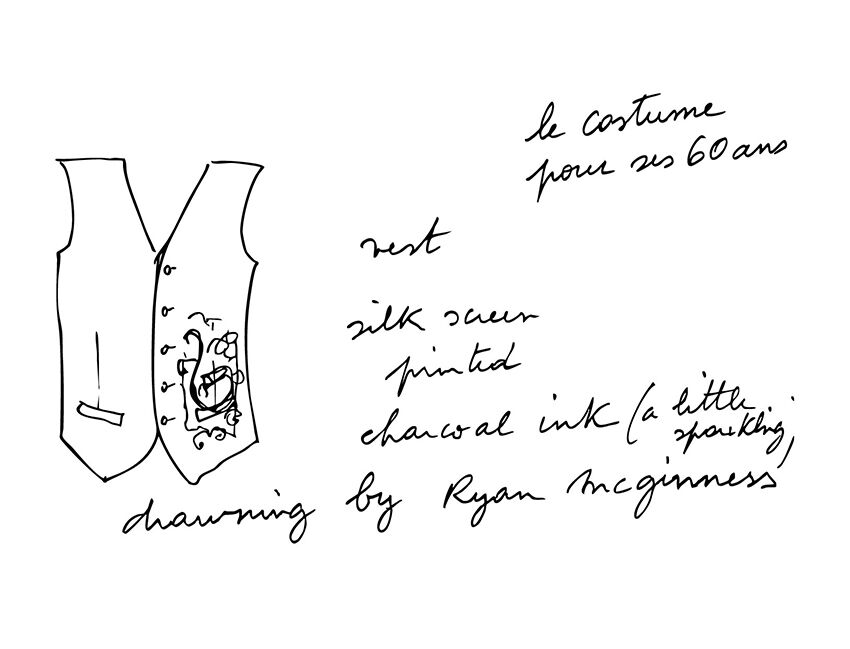 le costume
pour ses 60 ans
vest
silk screen
printed
charcoal ink (a little
sparkling)
drawning by Ryan mcginness